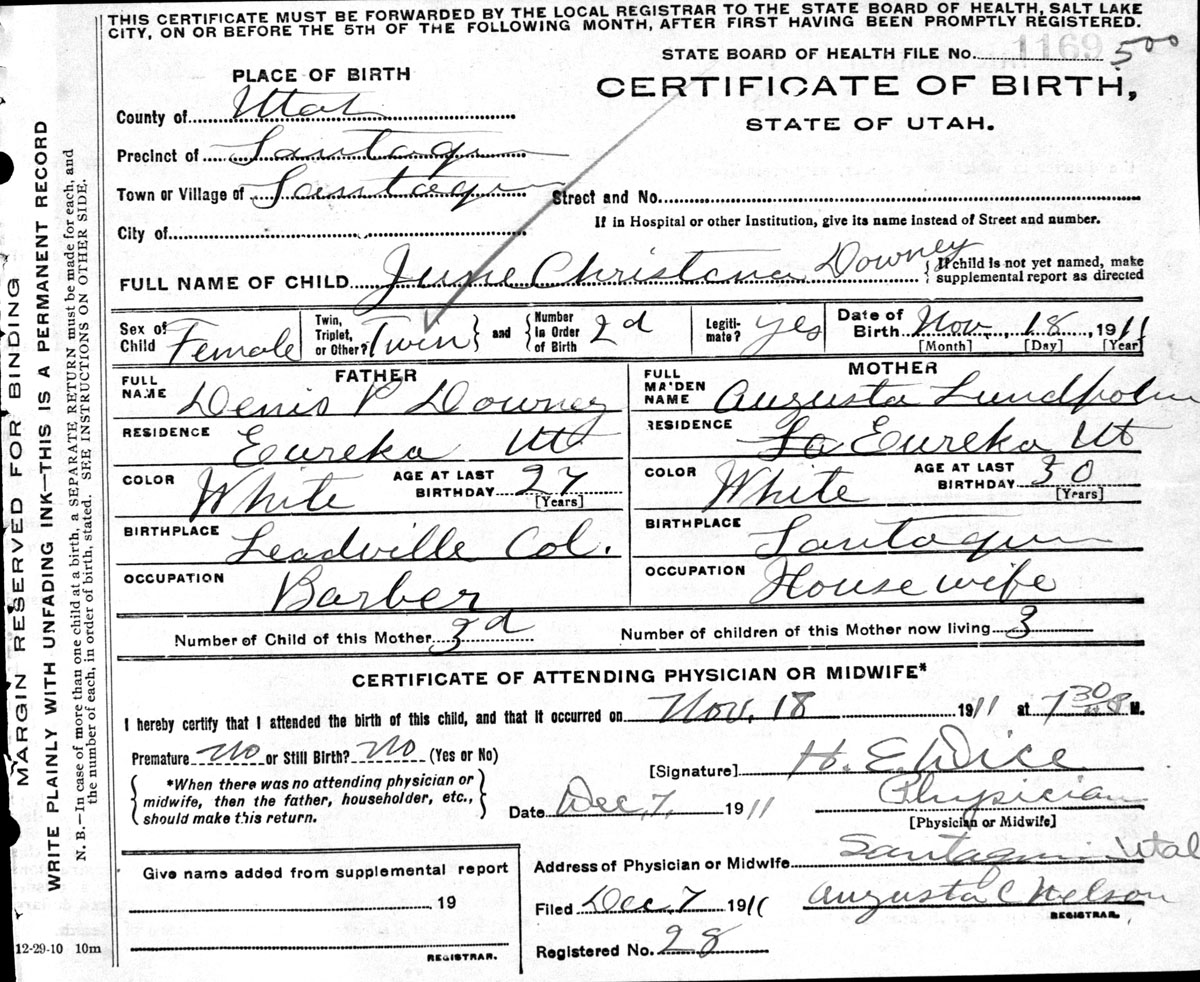 THIS CERTIFICATE MUST BE FORWARDED BY THE LOCAL REGISTRAR TO THE STATE BOARD OF HEALTH, SALT LAKE
CITY, ON OR BEFORE THE 5TH OF THE FOLLOWING MONTH, AFTER FIRST HAVING BEEN PROMPTLY REGISTERED.
STATE BOARD OF HEALTH FILE No. 1169 500
PLACE OF BIRTH
CERTIFICATE OF BIRTH,
STATE OF UTAH.
County of Utah
Precinct of Santaquin
Town or Village of Santaquin Street and No.
If in Hospital or other Institution, give its name instead of Street and number.
City of
FULL NAME OF CHILD June Christana Downey { If child is not yet named, make
supplemental report as directed
Sex of Child Female Twin, Triplet, or Other? Twin } and { Number In Order of Birth 2d Legiti- mate? yes Date of Birth Nov 18, 1911
[Month] [Day] [Year]
FATHER MOTHER
FULL NAME Denis P Downey FULL MAIDEN NAME Augusta Lundholm
RESIDENCE Eureka Ut RESIDENCE Eureka Ut
COLOR White AGE AT LAST BIRTHDAY 27 [Years] COLOR White AGE AT LAST BIRTHDAY 30 [Years]
BIRTHPLACE Leadville Col. BIRTHPLACE Santaquin
OCCUPATION Barber OCCUPATION House wife
Number of Child of this Mother 3d Number of children of this Mother now living 3
CERTIFICATE OF ATTENDING PHYSICIAN OR MIDWIFE*
I hereby certify that I attended the birth of this child, and that it occurred on Nov. 18 1911 at 7 30 M.
Premature No or Still Birth? No (Yes or No)
[Signature] H. E. Dice
{ *When there was no attending physician or
midwife, then the father, householder, etc.,
should make this return. }
Date Dec, 7, 1911 Physician
[Physician or Midwife]
Address of Physician or Midwife Santaquin Utah
Give name added from supplemental report
19
REGISTRAR.
Filed Dec 7 1911 Augusta C Nelson
REGISTRAR.
Registered No. 28
12-29-10 10m
MARGIN RESERVED FOR BINDING
WRITE PLAINLY WITH UNFADING INK—THIS IS A PERMANENT RECORD
N. B.—In case of more than one child at a birth, a SEPARATE RETURN must be made for each, and
the number of each, in order of birth, stated. SEE INSTRUCTIONS ON OTHER SIDE.